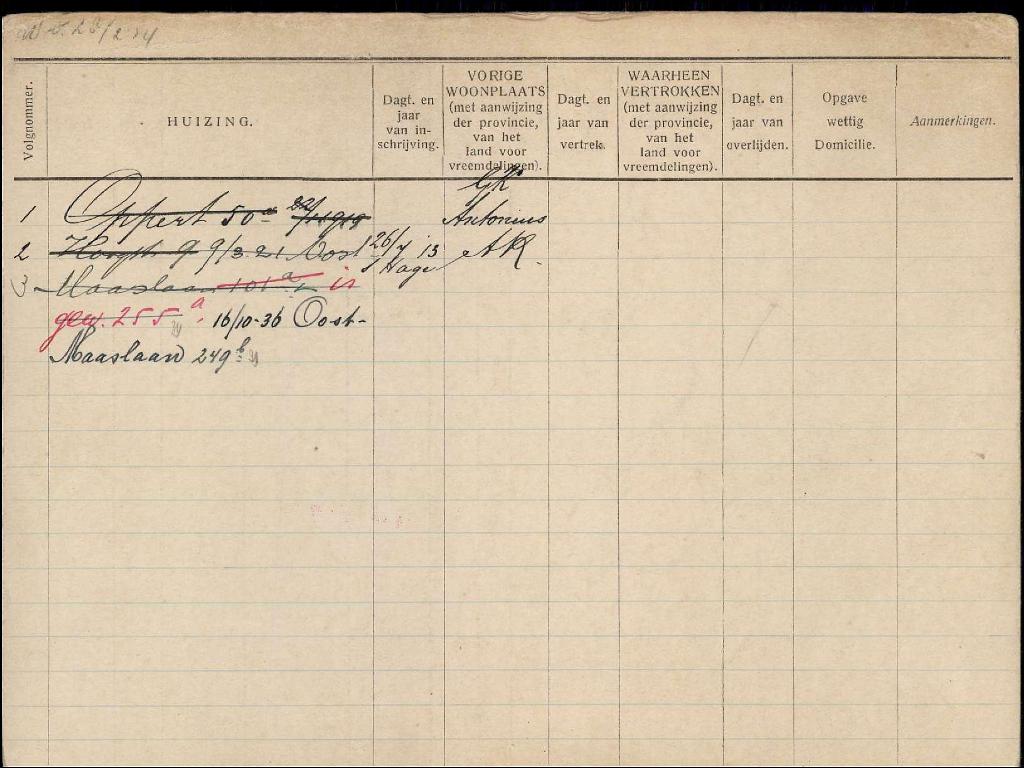 23/2 34
Volgnommer.
HUIZING.
Dagt. en
jaar
van in-
schrijving.
VORIGE
WOONPLAATS
(met aanwijzing
der provincie,
van het
land voor
vreemdelingen).
Dagt. en
jaar van
vertrek.
WAARHEEN
VERTROKKEN
(met aanwijzing
der provincie,
van het
land voor
vreemdelingen).
Dagt. en
jaar van
overlijden.
Opgave
wettig
Domicilie.
Aanmerkingen.
1 Oppert 50a Antonius
2 9 9/3 21 Oost 26/7 13 AK.
's Hage
3 Maaslaan 101a is
gew. 255a. 16/10-36 Oost-
Maaslaan 249b